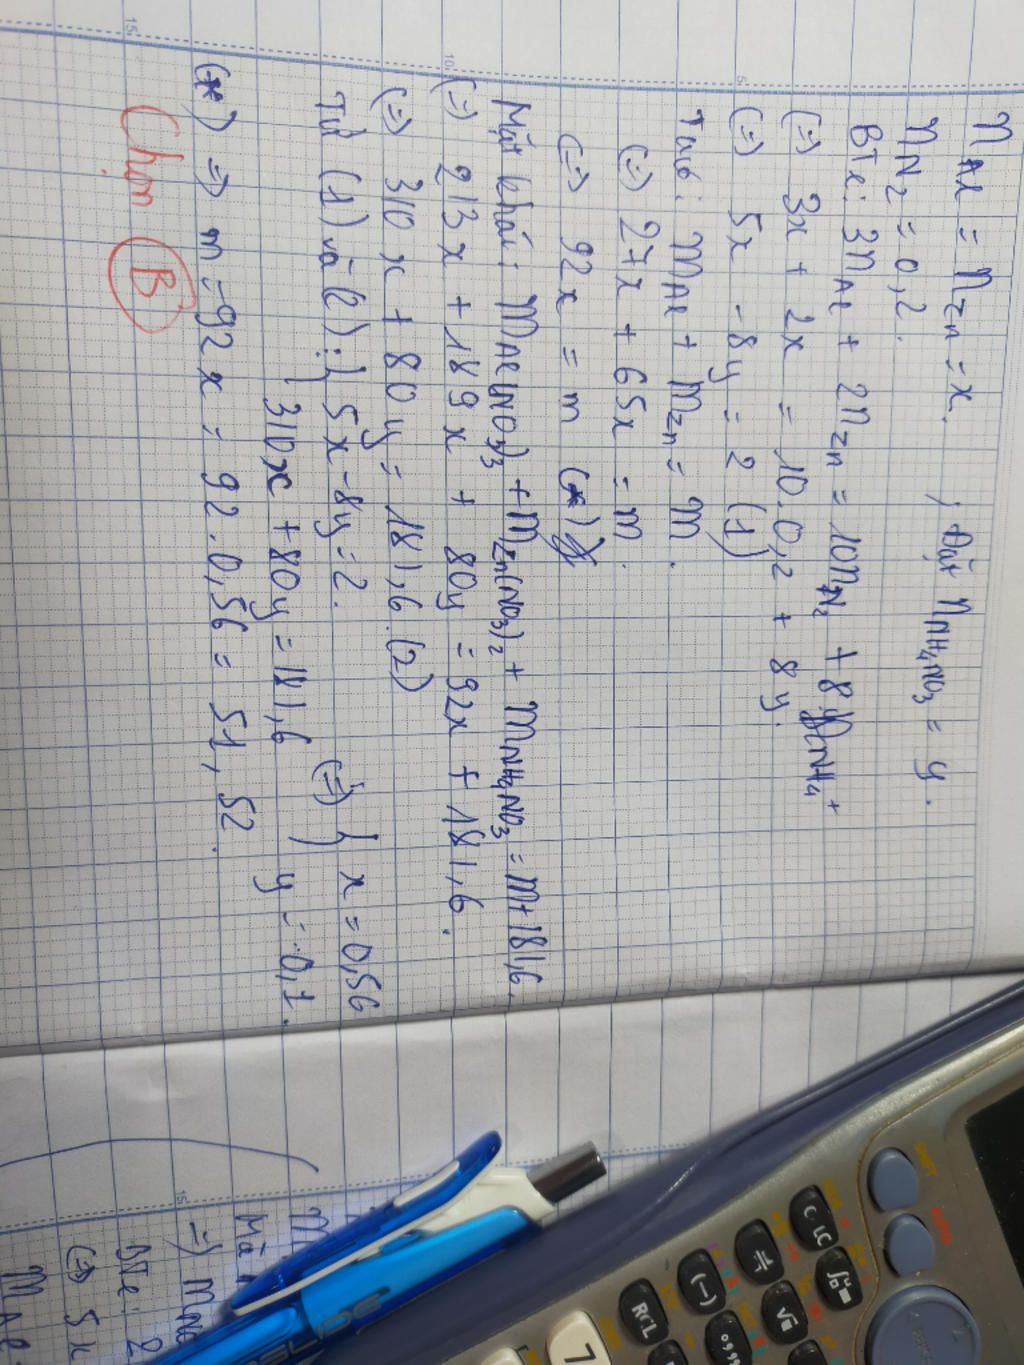 n Al = n Zn = x. ; Đặt n NH4NO3 = y.
n N2 = 0,2.
BTe: 3n Al + 2n Zn = 10n N2 + 8n NH4+
(=) 3x + 2x = 10.0,2 + 8y.
(=) 5x - 8y = 2 (1)
Ta có: m Al + m Zn = m.
(=) 27x + 65x = m.
(=) 92x = m (*)
Mặt khác: m Al(NO3)3 + m Zn(NO3)2 + m NH4NO3 = m + 181,6.
(=) 213x + 189x + 80y = 92x + 181,6.
(=) 310x + 80y = 181,6. (2)
Từ (1) và (2): { 5x - 8y = 2. (=) { x = 0,56
310x + 80y = 181,6 y = 0,1.
(*) => m = 92x = 92.0,56 = 51,52.
Chọn B
5
10
15
15
SHIFT
CLC
(-)
RCL
7